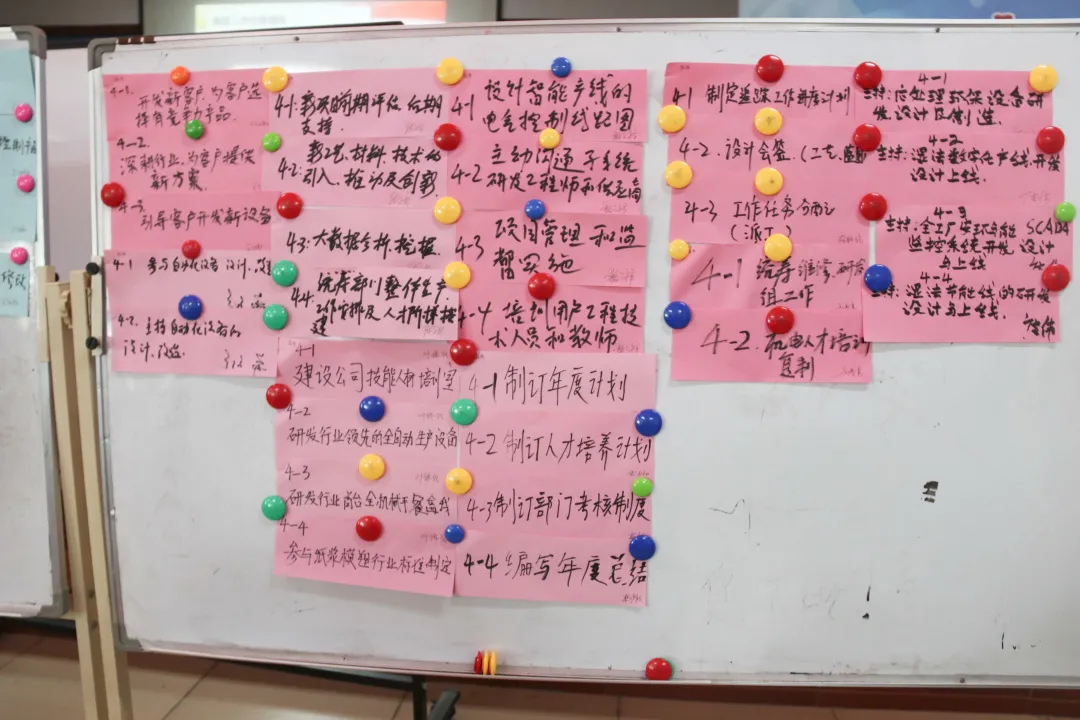 4-1.
开发新客户,为客户选
择有竞争力产品.
4-2
深耕行业,为客户提供
新方案.
4-3.
引导客户开发新设备
4-1 参与自动化设备 设计、改造
4-2. 主持自动化设备的
设计、改造.
4-1: 前期评估,后期
支持.
4-2: 新工艺、材料、技术的
引入、推动及创新
4-3: 大数据分析,挖掘.
4-4. 统筹部门整体生产、
工作安排及人才阶梯搭
建
4-1 设计智能产线的
电气控制线路图
4-2 主动沟通子系统
研发工程师和供应商
4-3 项目管理和监
督实施
4-4 培训用户工程技
术人员和教师
4-1
建设公司技能人才培训室
4-2
研发行业领先的全自动生产设备
4-3
研发行业首台全机械手餐盒机
4-4
参与纸浆模塑行业标准制定
4-1 制订年度计划
4-2 制订人才培养计划
4-3 制订部门考核制度
4-4 编写年度总结
4-1 制定监踪工作进度计划
4-2. 设计会签.(工艺、
4-3 工作任务分配
(派工)
4-1 统筹维修、研发
组工作
4-2. 机电人才培训
复制
4-1
主持: 后处理环保设备研
发、设计及制造.
4-2
主持: 湿法数字化产线开发
设计上线.
4-3
主持: 全工厂实环与能 SCADA
监控系统开发、设计
与上线
4-4
主持: 湿法节能线的研发
设计与上线.
修改